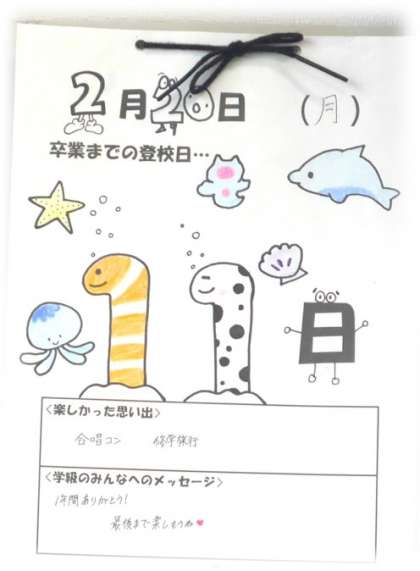 2月20日 (月)
卒業までの登校日…
11日
<楽しかった思い出>
合唱コン 修学旅行
<学級のみんなへのメッセージ>
1年間ありがとう!
最後まで楽しもうね♥